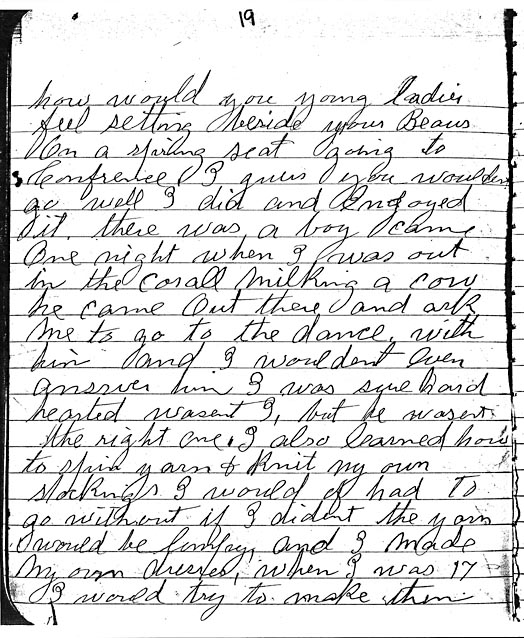 19
how would you young ladies
feel setting beside your Beaus
On a spring seat going to
Confrence, I guess you wouldent
go well I did and Engoyed
it. there was a boy came
One night when I was out
in the corall milking a cow
he came Out there and ask
me to go to the dance. with
him and I wouldent Even
answer him I was sure hard
hearted wasent I, but he wasent
the right one. I also learned how
to spin yarn & Knit my own
stockings I would of had to
go without if I dident the yarn
would be and I Made
My own dresses, when I was 17
I would try to make them